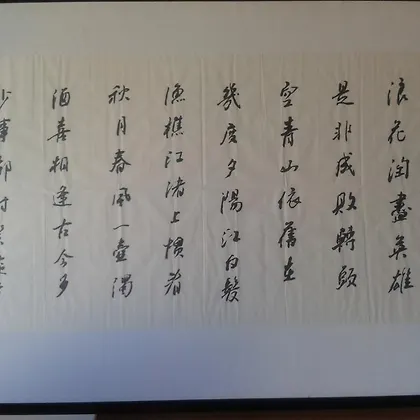 浪花淘盡英雄
是非成敗轉頭
空青山依舊在
幾度夕陽紅白髮
漁樵江渚上慣看
秋月春風一壺濁
酒喜相逢古今多
少事都付笑談